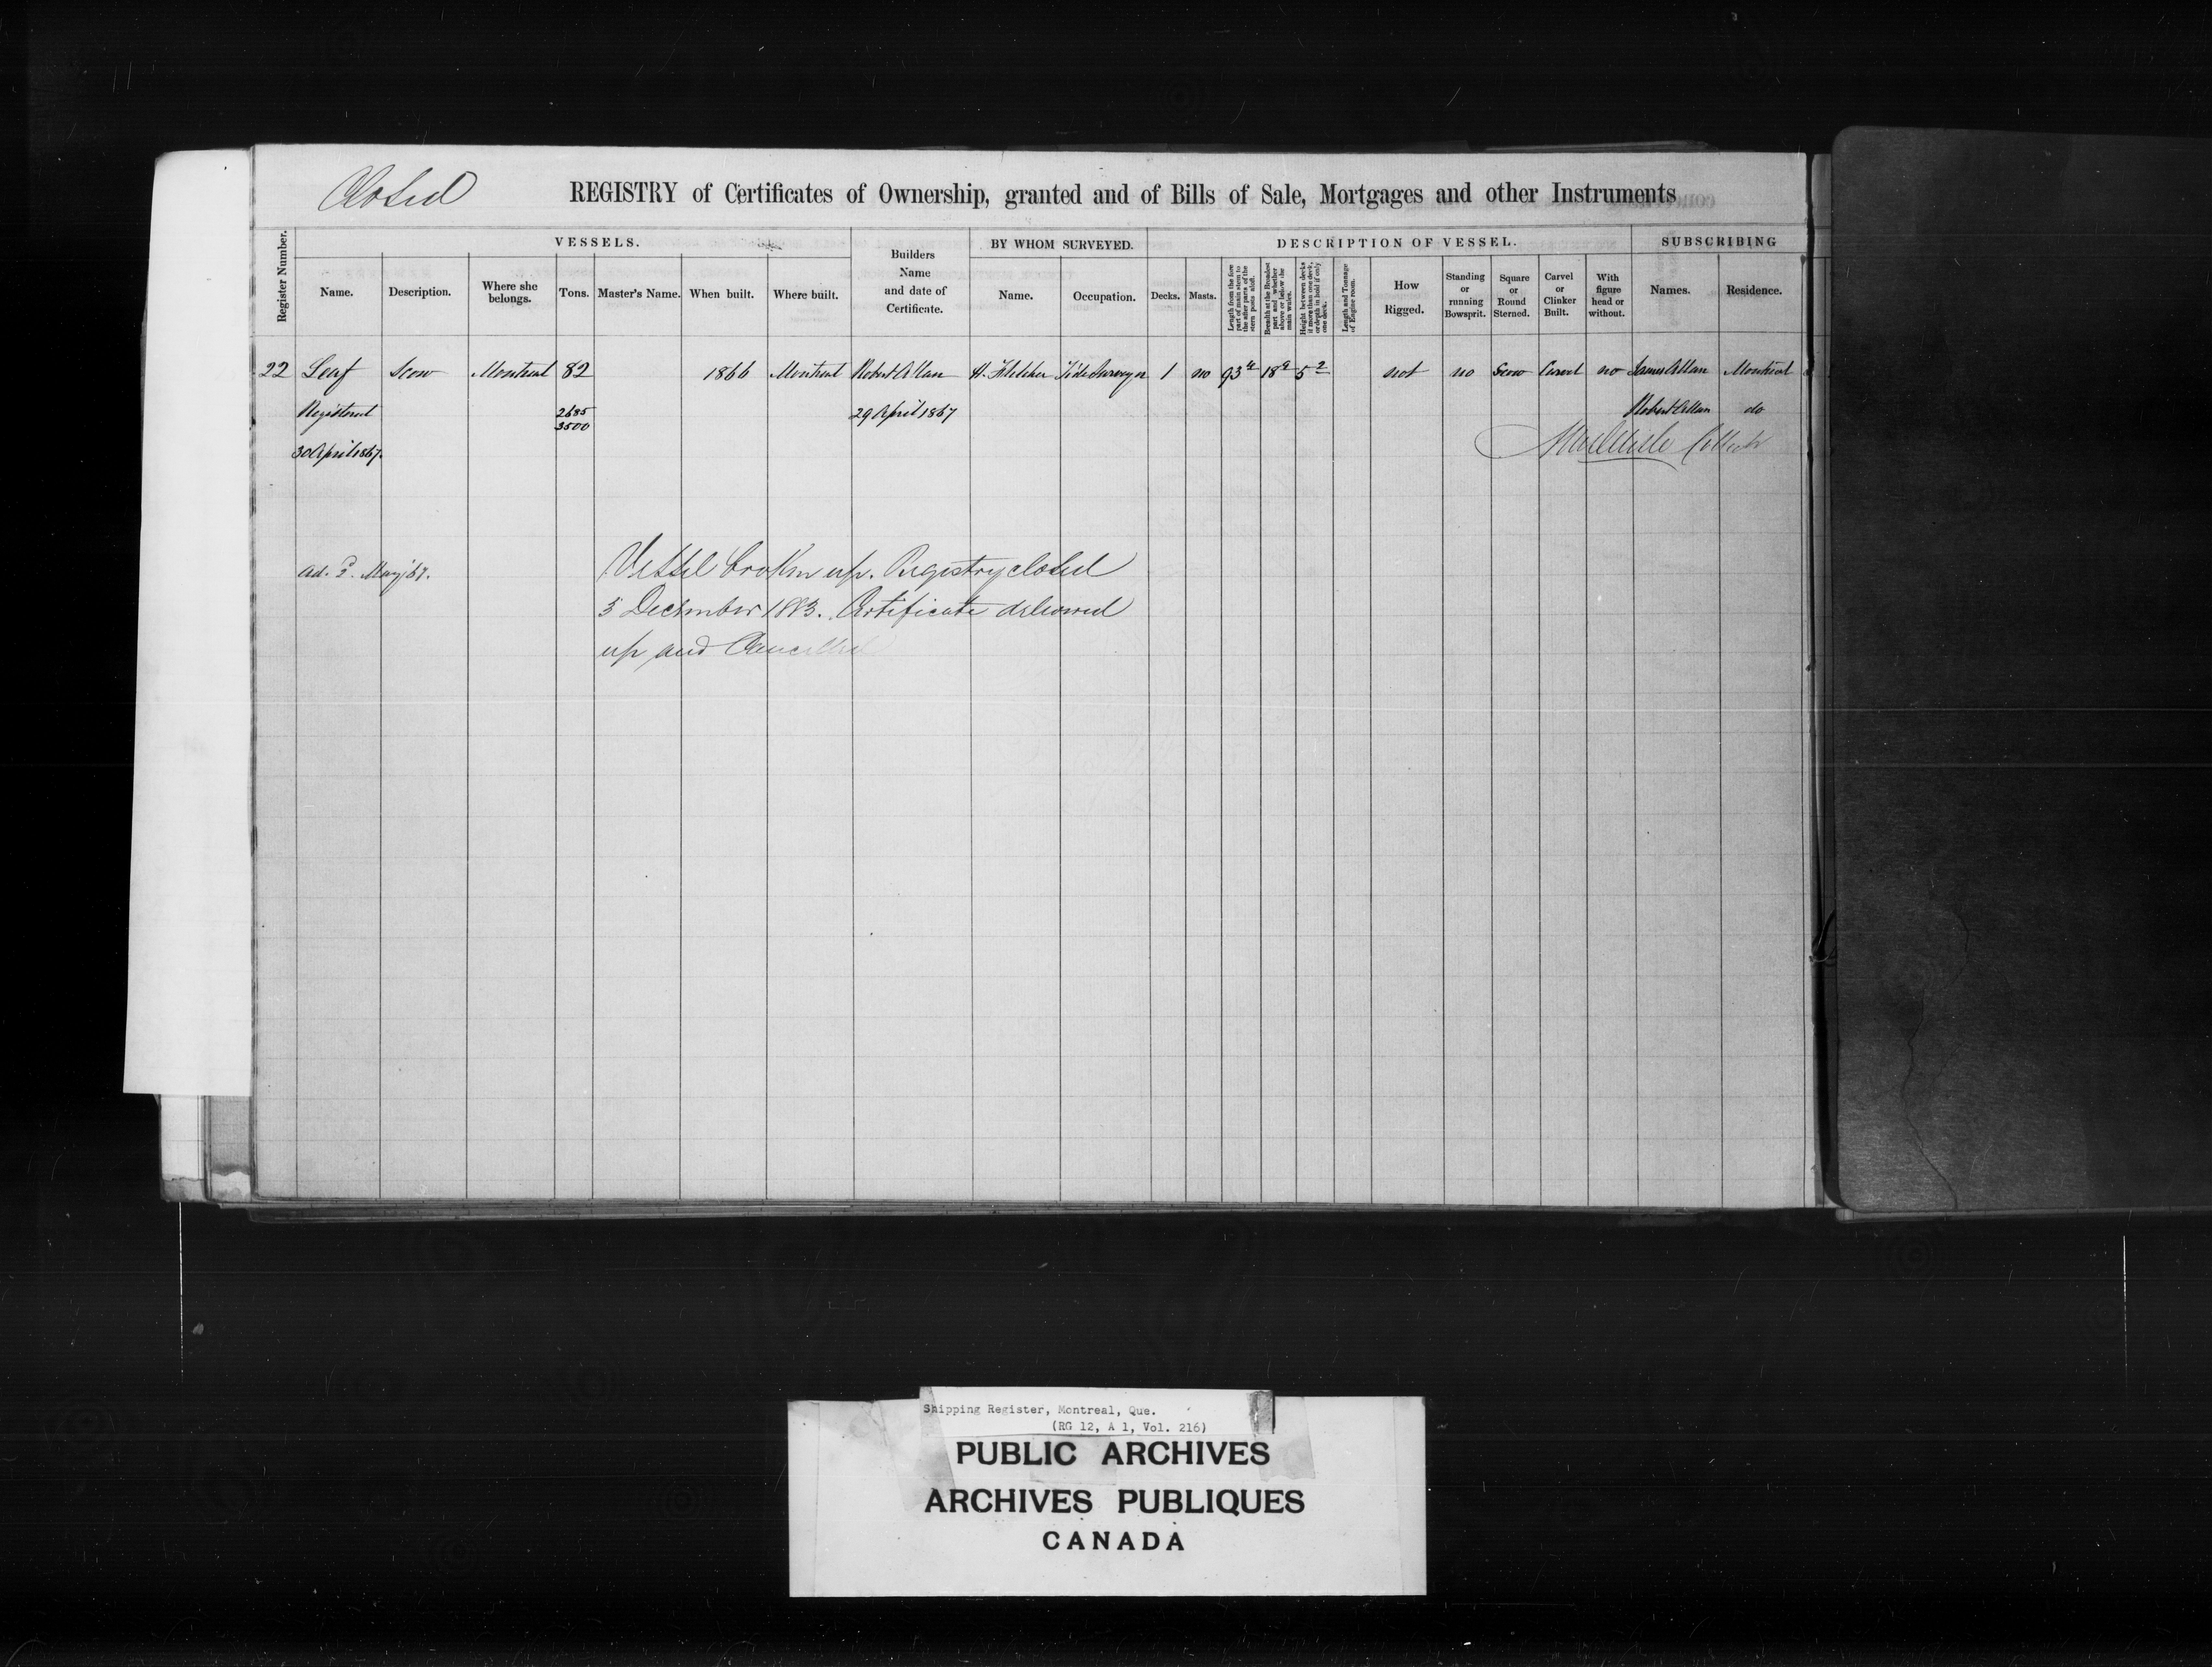 Closed
REGISTRY of Certificates of Ownership, granted and of Bills of Sale, Mortgages and other Instruments
Register Number.
VESSELS.
Name.
Description.
Where she belongs.
Tons.
Master's Name.
When built.
Where built.
Builders Name and date of Certificate.
BY WHOM SURVEYED.
Name.
Occupation.
DESCRIPTION OF VESSEL.
Decks.
Masts.
Length from the fore part of main stem to the after parts of the stern posts aloft.
Breadth at the Broadest part and whether above or below the main wales.
Height between decks if more than one deck, or depth in hold if only one deck.
Length and Tonnage of Engine room.
How Rigged.
Standing or running Bowsprit.
Square or Round Sterned.
Carvel or Clinker Built.
With figure head or without.
SUBSCRIBING
Names.
Residence.
22 Leaf Scow Montreal 82 1866 Montreal Robert Allan H. Fletcher Tide Surveyor 1 no 93 18 5 2 not no Scow Carvel no James Allan Montreal
Registered 2685 29 April 1867 Robert Allan do
3500
30 April 1867. Collector
ad. May/67.
Vessel broken up. Registry closed
5 December 1883. Certificate delivered
up and Cancelled
Shipping Register, Montreal, Que.
(RG 12, A 1, Vol. 216)
PUBLIC ARCHIVES
ARCHIVES PUBLIQUES
CANADA